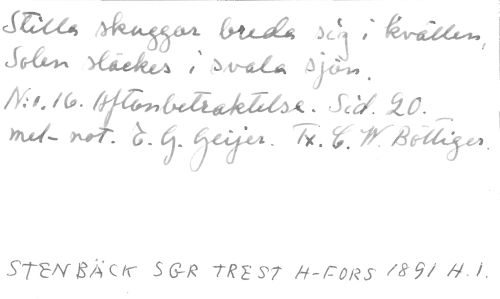 Stilla skuggor breda sig i kvällen,
Solen släckes i svala sjön.
N:o. 16. Aftonbetraktelse. Sid. 20.
mel- not. E. G. Geijer. Tx. C. W. Böttiger.
STENBÄCK SGR TREST H-FORS 1891 H.I.